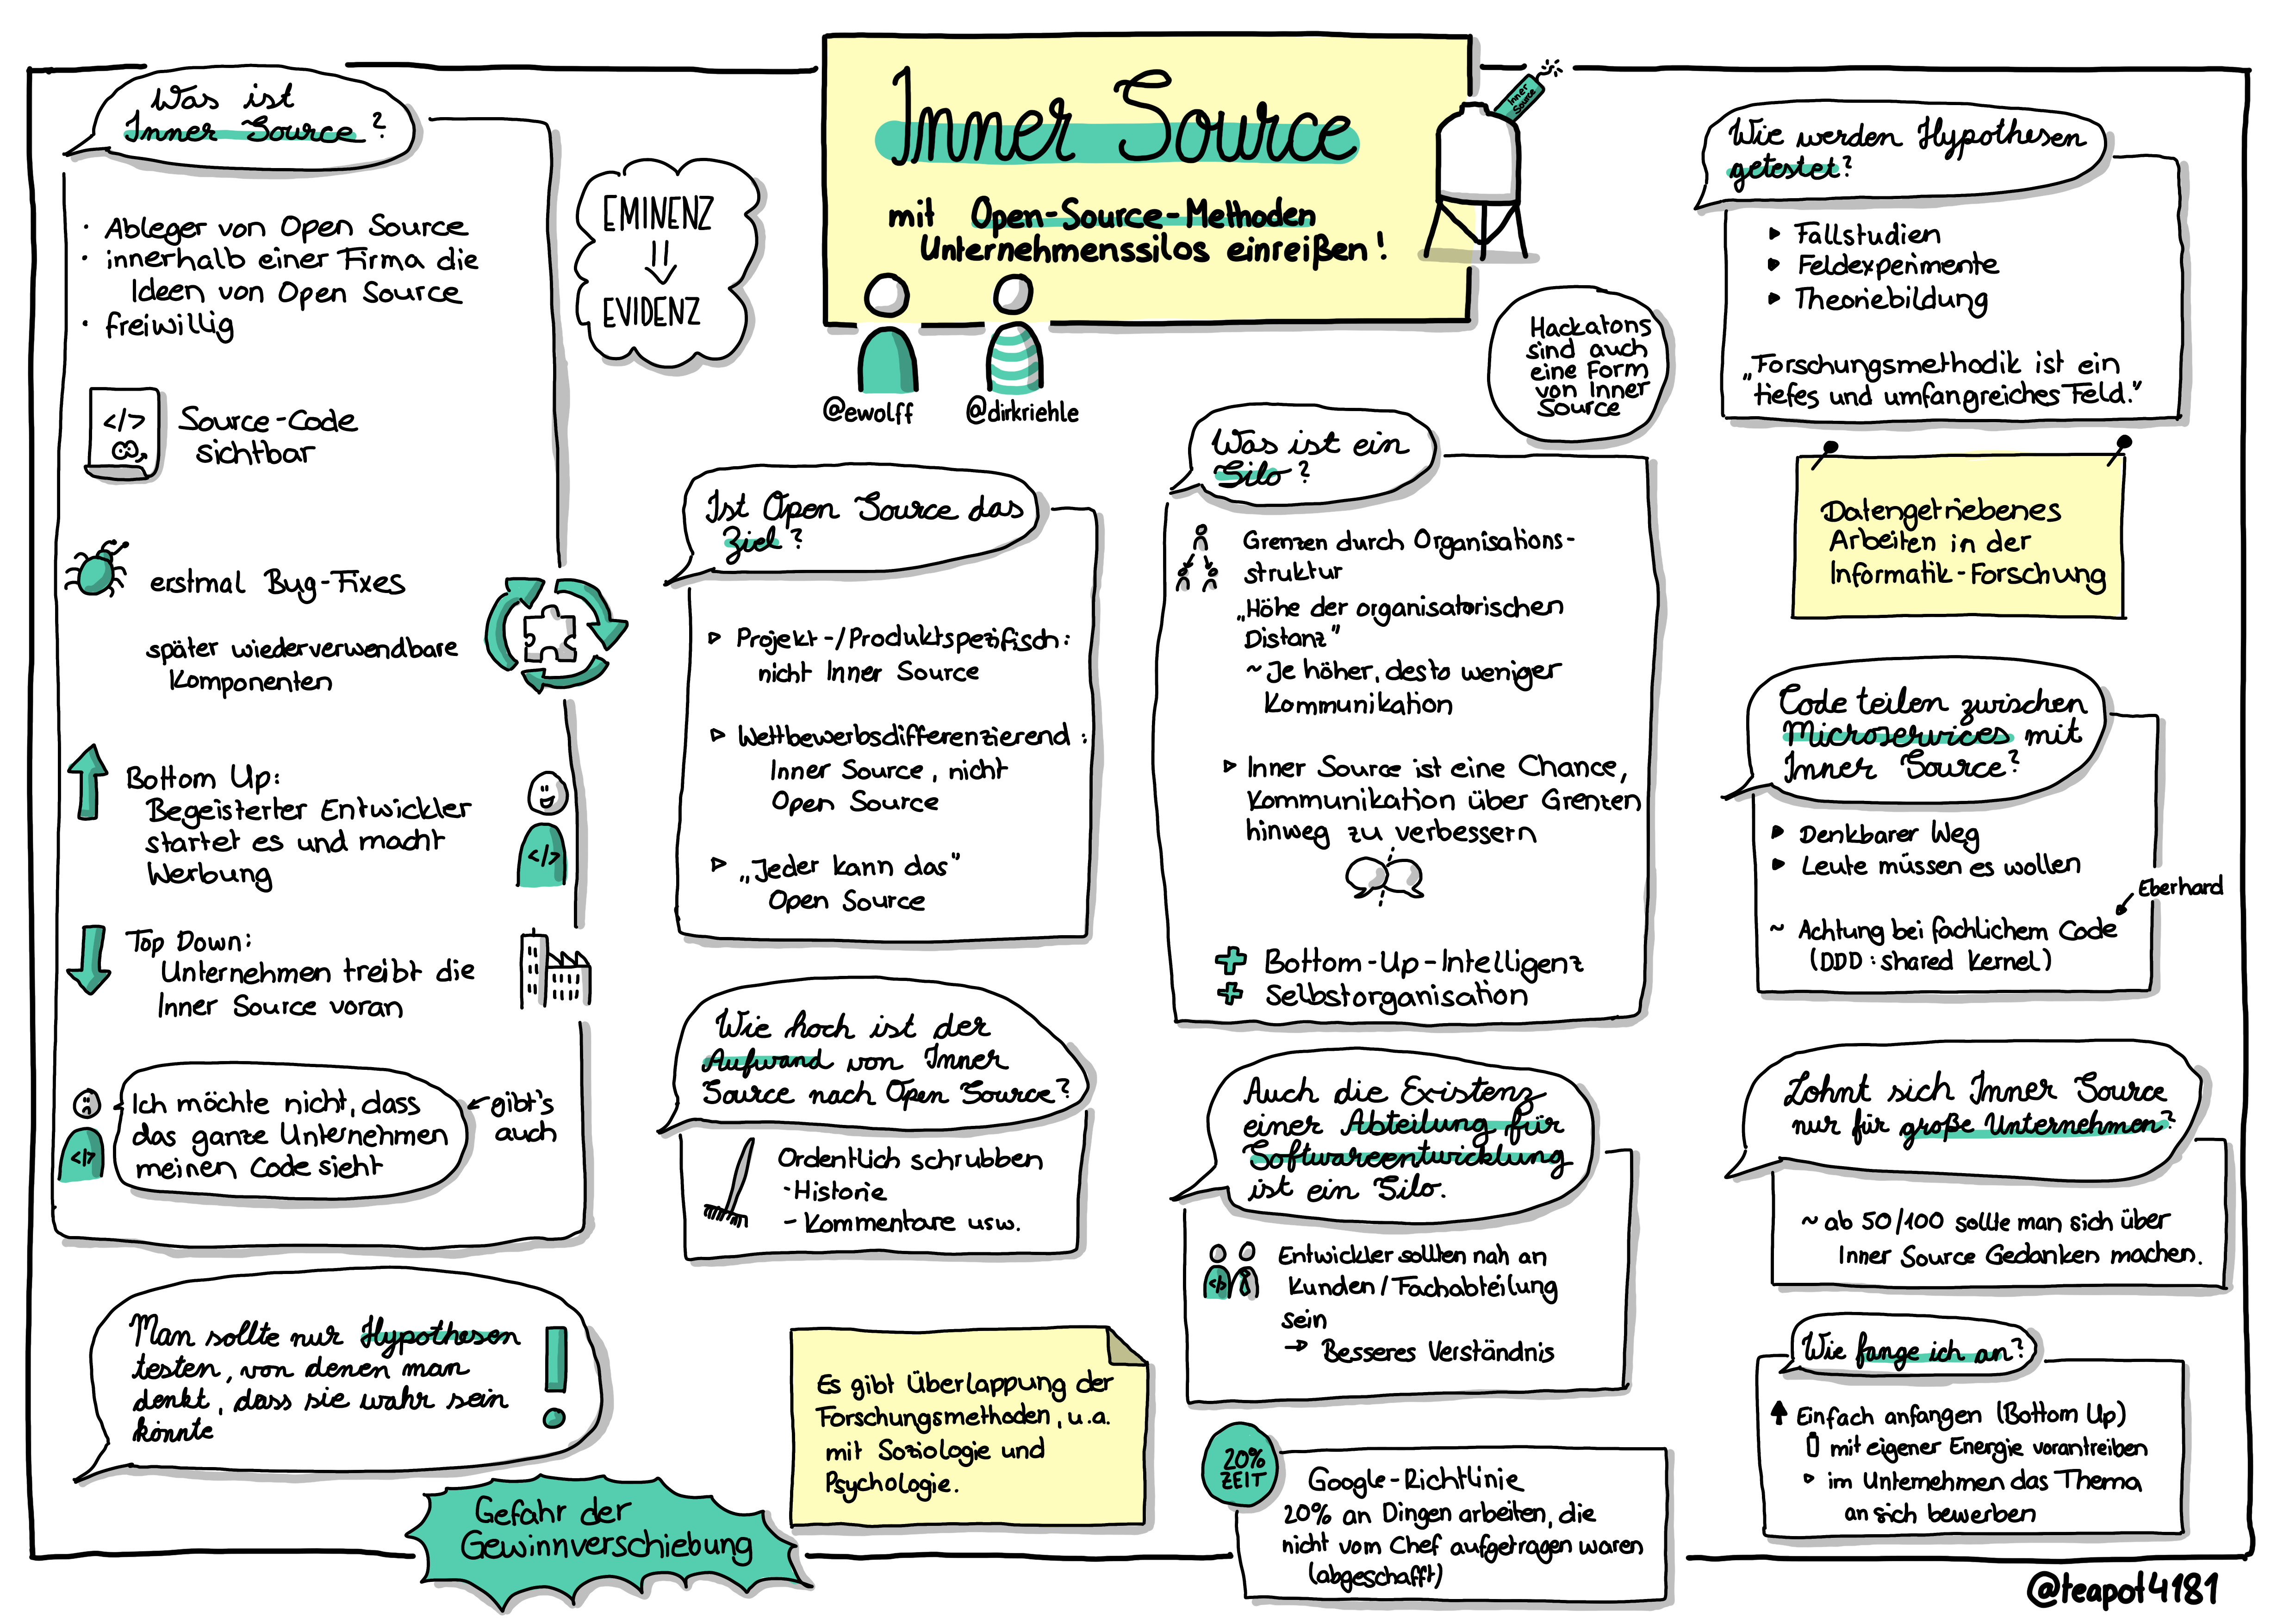 Inner Source
mit Open-Source-Methoden
Unternehmenssilos einreißen!
Inner
Source
@ewolff
@dirkriehle
Was ist
Inner Source?
· Ableger von Open Source
· innerhalb einer Firma die
Ideen von Open Source
· freiwillig
</>
Source-Code
sichtbar
erstmal Bug-Fixes
später wiederverwendbare
Komponenten
Bottom Up:
Begeisterter Entwickler
startet es und macht
Werbung
</>
Top Down:
Unternehmen treibt die
Inner Source voran
</>
Ich möchte nicht, dass
das ganze Unternehmen
meinen Code sieht
gibt's
auch
EMINENZ
EVIDENZ
Man sollte nur Hypothesen
testen, von denen man
denkt, dass sie wahr sein
könnte
!
Gefahr der
Gewinnverschiebung
Ist Open Source das
Ziel?
Projekt-/Produktspezifisch:
nicht Inner Source
Wettbewerbsdifferenzierend:
Inner Source, nicht
Open Source
„Jeder kann das"
Open Source
Wie hoch ist der
Aufwand von Inner
Source nach Open Source?
Ordentlich schrubben
- Historie
- Kommentare usw.
Es gibt Überlappung der
Forschungsmethoden, u.a.
mit Soziologie und
Psychologie.
Hackatons
sind auch
eine Form
von Inner
Source
Was ist ein
Silo?
Grenzen durch Organisations-
struktur
„Höhe der organisatorischen
Distanz"
~ Je höher, desto weniger
Kommunikation
Inner Source ist eine Chance,
Kommunikation über Grenzen
hinweg zu verbessern
+ Bottom-Up-Intelligenz
+ Selbstorganisation
Auch die Existenz
einer Abteilung für
Softwareentwicklung
ist ein Silo.
</>
Entwickler sollten nah an
Kunden/Fachabteilung
sein
→ Besseres Verständnis
20%
ZEIT
Google-Richtlinie
20% an Dingen arbeiten, die
nicht vom Chef aufgetragen waren
(abgeschafft)
Wie werden Hypothesen
getestet?
Fallstudien
Feldexperimente
Theoriebildung
„Forschungsmethodik ist ein
tiefes und umfangreiches Feld."
Datengetriebenes
Arbeiten in der
Informatik-Forschung
Code teilen zwischen
Microservices mit
Inner Source?
Denkbarer Weg
Leute müssen es wollen
Eberhard
~ Achtung bei fachlichem Code
(DDD: shared Kernel)
Lohnt sich Inner Source
nur für große Unternehmen?
~ ab 50/100 sollte man sich über
Inner Source Gedanken machen.
Wie fange ich an?
Einfach anfangen (Bottom Up)
mit eigener Energie vorantreiben
im Unternehmen das Thema
an sich bewerben
@teapot4181